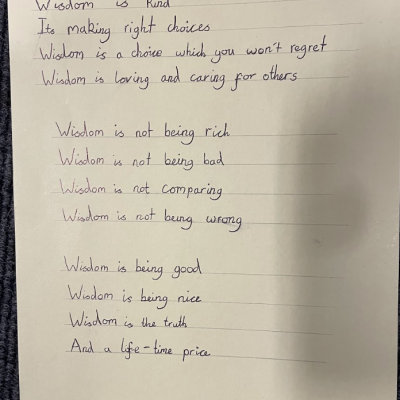 Wisdom is kind
Its making right choices
Wisdom is a choice which you won't regret
Wisdom is loving and caring for others
Wisdom is not being rich
Wisdom is not being bad
Wisdom is not comparing
Wisdom is not being wrong
Wisdom is being good
Wisdom is being nice
Wisdom is the truth
And a life-time price